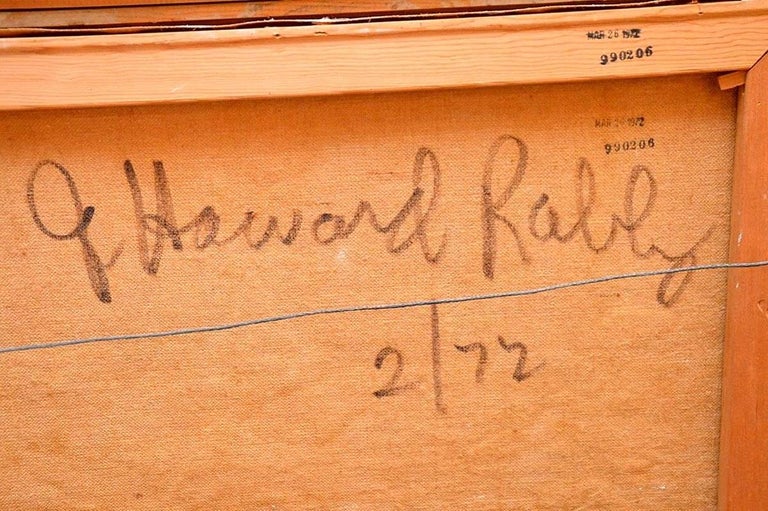 MAR 26 1972
990206
MAR 26 1972
990206
G Howard Rably
2/72